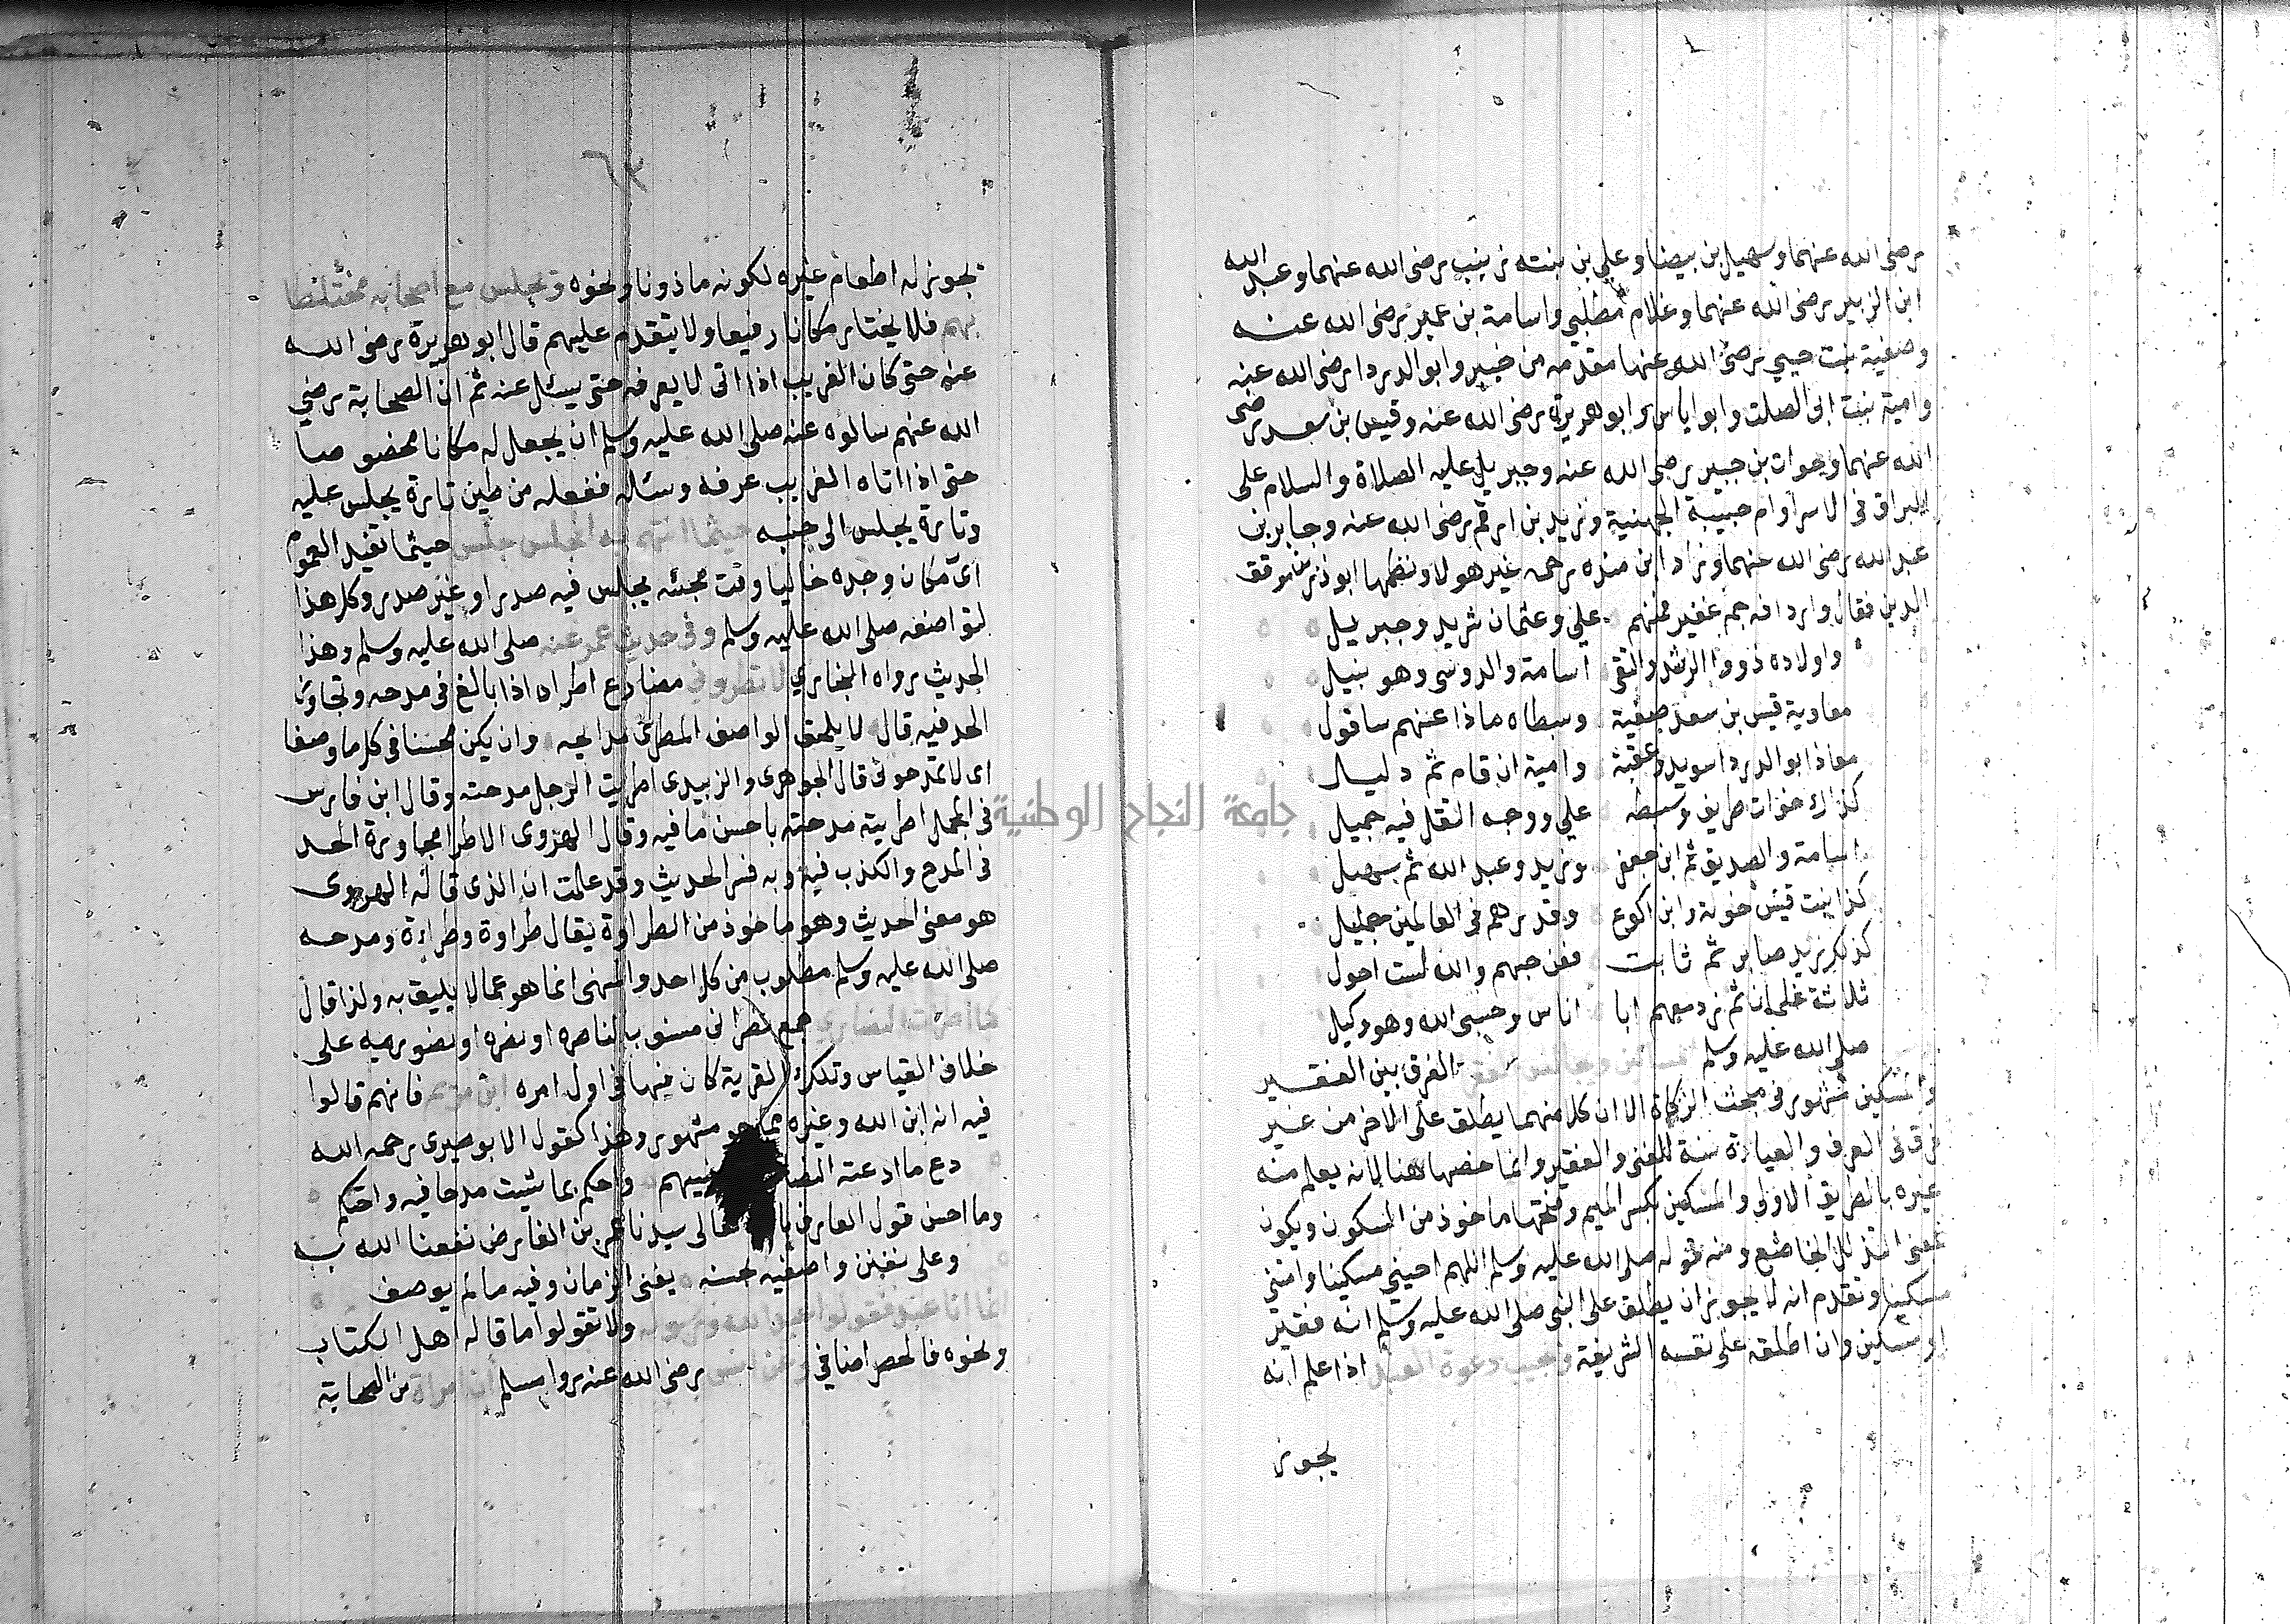 رضي الله عنهما وسهيل بن بيضا وعلي بن بنته زينب رضي الله عنهما وعبد الله
ابن الزبير رضي الله عنهما وغلام مطلبي واسامة بن عمير رضي الله عنه
وصفية بنت حيي رضي الله عنها مقدمه من خيبر وابو الدردا رضي الله عنه
وامية بنت ابي الصلت وابو اياس وابو هريرة رضي الله عنه وقيس بن سعد رضي
الله عنهما وخوات بن جبير رضي الله عنه وجبريل عليه الصلاة والسلام على
البراق في الاسرا وام حبيبة الجهنية وزيد بن ارقم رضي الله عنه وجابر بن
عبد الله رضي الله عنهما وزاد ابن منده رحمه غير هولا ونظمها ابوذر بن موفق
الدين فقال وارد افه جم غفير فمنهم علي وعثمان شريد وجبريل
واولاده ذووا الرشد والتقى اسامة والدوسي وهو نبيل
معاوية قيس بن سعد صفية وسبطاه ماذا عنهم ساقول
معاذ ابو الدردا سويد وعقبة وامية ان قام ثم دليل
كذاك خوات طريف وسبطه علي ووجه النقل فيه جميل
اسامة والصديق ثم ابن جعفر وزيد وعبد الله ثم سهيل
كذا بنت قيس خولة وابن اكوع وقدرهم في العالمين جميل
كذلك زيد صابر ثم ثابت فعن حبهم والله لست احول
ثلاثة غلمان ثم زد معهم ابا اناس وحسبي الله وهو وكيل
صلى الله عليه وسلم الفرق بين الفقير
والمسكين مشهور في مبحث الزكاة الا ان كلا منهما يطلق على الاخر من غير
فرق في العرف والعيادة سنة للغني والفقير وانما خصها هنا لانه يعلم منه
غيره بالطريق الاولى والمسكين بكسر الميم وفتحها ماخوذ من السكون ويكون
بمعنى المتذلل الخاضع ومنه قوله صلى الله عليه وسلم اللهم احيني مسكينا وامتني
مسكينا وتقدم انه لا يجوز ان يطلق على النبي صلى الله عليه وسلم انه فقير
او مسكين وان اطلقه على نفسه الشريفة ويجيب دعوة العبد اذا علم انه
يجوز
٦٣
يجوز له اطعام غيره لكونه ماذونا ونحوه ويجلس مع اصحابه مختلطا
بهم فلا يختار مكانا رفيعا ولا يتقدم عليهم قال ابو هريرة رضي الله
عنه حتى كان الغريب اذا اتى لا يعرفه حتى يسئل عنه ثم ان الصحابة رضي
الله عنهم سالوه عنه صلى الله عليه وسلم ان يجعل له مكانا مخصوصا
حتى اذا اتاه الغريب عرفه وسئله ففعله من طين تارة يجلس عليه
وتارة يجلس الى جنبه حيثما انتهى به المجلس جلس حيثما تفيد العموم
اي مكان وجده خاليا وقت مجئه يجلس فيه صدرا وغير صدر وكل هذا
لتواضعه صلى الله عليه وسلم وفي حديث عمر عنه صلى الله عليه وسلم وهذا
الحديث رواه البخاري لا تطروني مضارع اطراه اذا بالغ في مدحه وتجاوز
الحد فيه قال لا يلحق الواصف المطري مدايحه وان يكن محسنا في كل ما وصفا
اي لا تمدحوني قال الجوهري والزبيدي اطريت الرجل مدحته وقال ابن فارس
في المجمل اطريته مدحته باحسن ما فيه وقال الهروي الاطرا مجاوزة الحد
في المدح والكذب فيه وبه فسر الحديث وقد علمت ان الذي قاله الهروي
هو معنى احديث وهو ماخوذ من الطراوة يقال طراوة وطراءة ومدحه
صلى الله عليه وسلم مطلوب من كل احد والمنهي انما هو عما لا يليق به ولذا قال
كما اطرت النصارى جمع نصراني منسوب لناصره او نصره او نضوريه على
خلاف القياس وتلك القرية كان فيها في اول امره ابن مريم فانهم قالوا
فيه انه ابن الله وغيره مما هو مشهور وهذا كقول الابوصيري رحمه الله
دع ما ادعته نبيهم واحكم بما شيت مدحا فيه واحتكم
وما احسن قول العارف تعالى سيدنا عمر بن الفارض نفعنا الله به
وعلى تفنن واصفيه لحسنه يفنى الزمان وفيه مالم يوصف
انما انا عبد فقولوا عبد الله ورسوله ولا تقولوا ما قاله اهل الكتاب
ونحوه فالحصر اضافي وعن انس رضي الله عنه رواه مسلم ان امراة من الصحابة
جامعة النجاح الوطنية